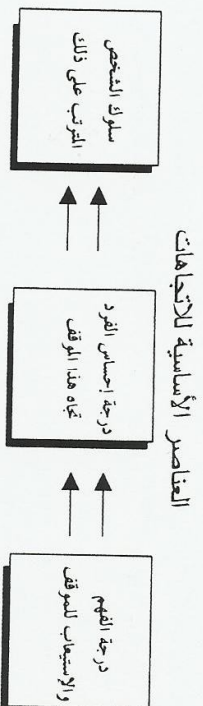 العناصر الأساسية للاتجاهات
درجة الفهم
والإستيعاب للموقف
درجة إحساس الفرد
تجاه هذا الموقف
سلوك الشخص
المترتب على ذلك